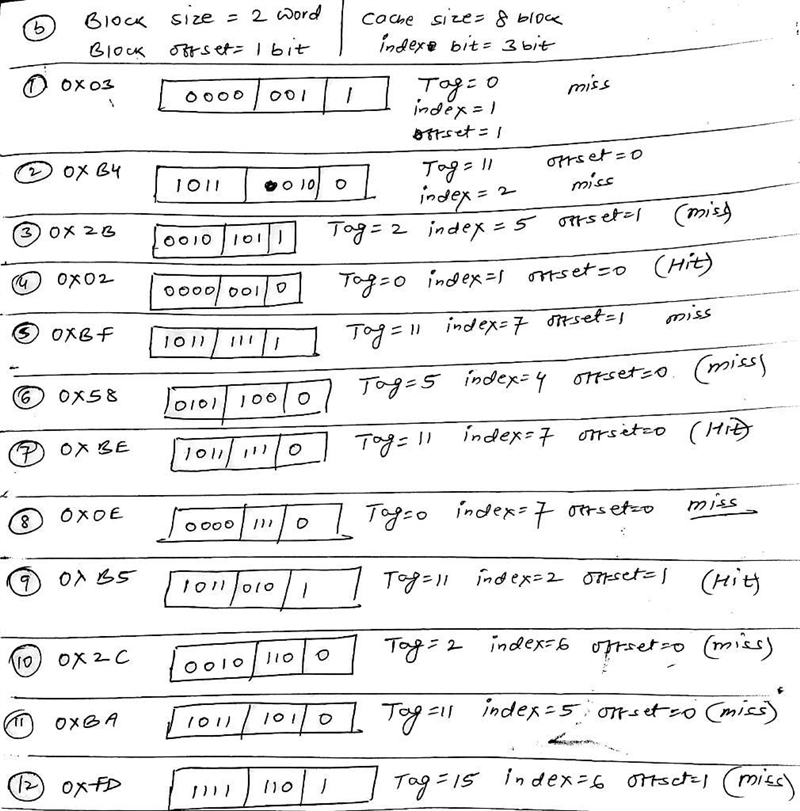 (b) Block size = 2 word | Cache size = 8 block
Block offset = 1 bit | index bit = 3 bit
① 0x03 0000 | 001 | 1 Tag = 0 miss
index = 1
offset = 1
② 0xB4 1011 | 010 | 0 Tag = 11 offset = 0
index = 2 miss
③ 0x2B 0010 | 101 | 1 Tag = 2 index = 5 offset = 1 (miss)
④ 0x02 0000 | 001 | 0 Tag = 0 index = 1 offset = 0 (Hit)
⑤ 0xBF 1011 | 111 | 1 Tag = 11 index = 7 offset = 1 miss
⑥ 0x58 0101 | 100 | 0 Tag = 5 index = 4 offset = 0. (miss)
⑦ 0xBE 1011 | 111 | 0 Tag = 11 index = 7 offset = 0 (Hit)
⑧ 0x0E 0000 | 111 | 0 Tag = 0 index = 7 offset = 0 miss
⑨ 0xB5 1011 | 010 | 1 Tag = 11 index = 2 offset = 1 (Hit)
⑩ 0x2C 0010 | 110 | 0 Tag = 2 index = 6 offset = 0 (miss)
⑪ 0xBA 1011 | 101 | 0 Tag = 11 index = 5 offset = 0 (miss)
⑫ 0xFD 1111 | 110 | 1 Tag = 15 index = 6 offset = 1 (miss)